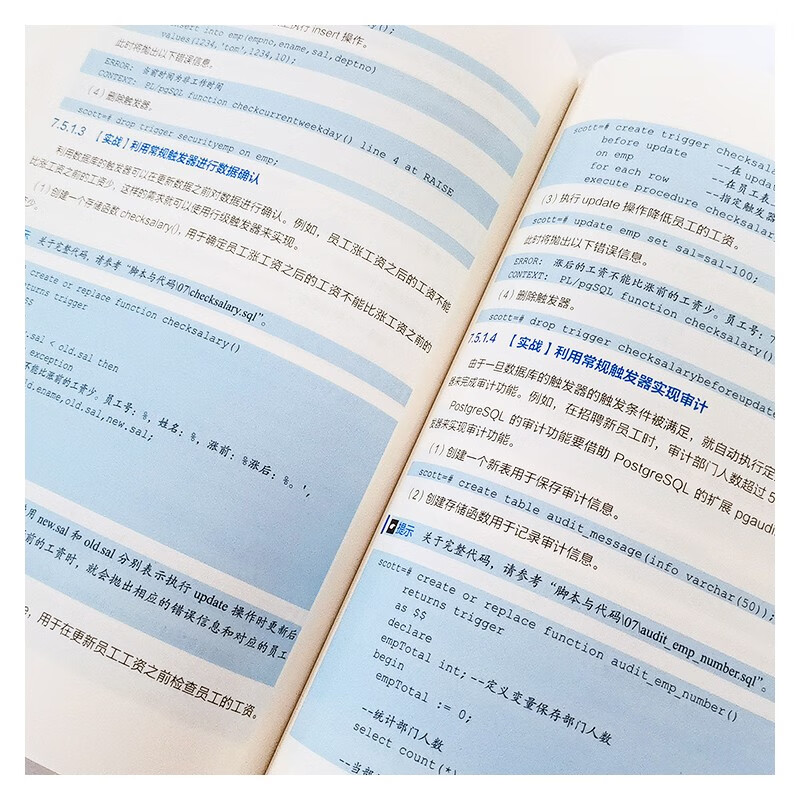 执行 insert 操作。
insert into emp(empno,ename,sal,deptno)
values(1234,'tom',1234,10);
此时将抛出以下错误信息。
ERROR: 当前时间为非工作时间
CONTEXT: PL/pgSQL function checkcurrentweekday() line 4 at RAISE
(4)删除触发器。
scott=# drop trigger securityemp on emp;
7.5.1.3 【实战】利用常规触发器进行数据确认
利用数据库的触发器可以在更新数据之前对数据进行确认。例如,员工涨工资之后的工资不能
比涨工资之前的工资少。这样的需求就可以使用行级触发器来实现。
(1)创建一个存储函数 checksalary(),用于确定员工涨工资之后的工资不能比涨工资之前的
少。
关于完整代码,请参考“脚本与代码\07\checksalary.sql”。
create or replace function checksalary()
returns trigger
$$
.sal < old.sal then
exception
不能比涨前的工资少。员工号:%, 姓名:%, 涨前:%涨后:%。',
d.ename,old.sal,new.sal;
用 new.sal 和 old.sal 分别表示执行 update 操作时更新后
前的工资时,就会抛出相应的错误信息和对应的员工
,用于在更新员工工资之前检查员工的工资。
scott=# create trigger checksala
before update --在 updat
on emp --在员工表
for each row --指定触发器
execute procedure checksalar
(3)执行 update 操作降低员工的工资。
scott=# update emp set sal=sal-100;
此时将抛出以下错误信息。
ERROR: 涨后的工资不能比涨前的工资少。员工号:7
CONTEXT: PL/pgSQL function checksalary()
(4)删除触发器。
scott=# drop trigger checksalarybeforeupdate
7.5.1.4 【实战】利用常规触发器实现审计
由于一旦数据库的触发器的触发条件被满足,就自动执行定
器来完成审计功能。例如,在招聘新员工时,审计部门人数超过 5
PostgreSQL 的审计功能要借助 PostgreSQL 的扩展 pgaudit
发器来实现审计功能。
(1)创建一个新表用于保存审计信息。
scott=# create table audit_message(info varchar(50));
(2)创建存储函数用于记录审计信息。
提示 关于完整代码,请参考“脚本与代码\07\audit_emp_number.sql”。
scott=# create or replace function audit_emp_number()
returns trigger
as $$
declare
empTotal int; --定义变量保存部门人数
begin
empTotal := 0;
--统计部门人数
select count(*)
--当部